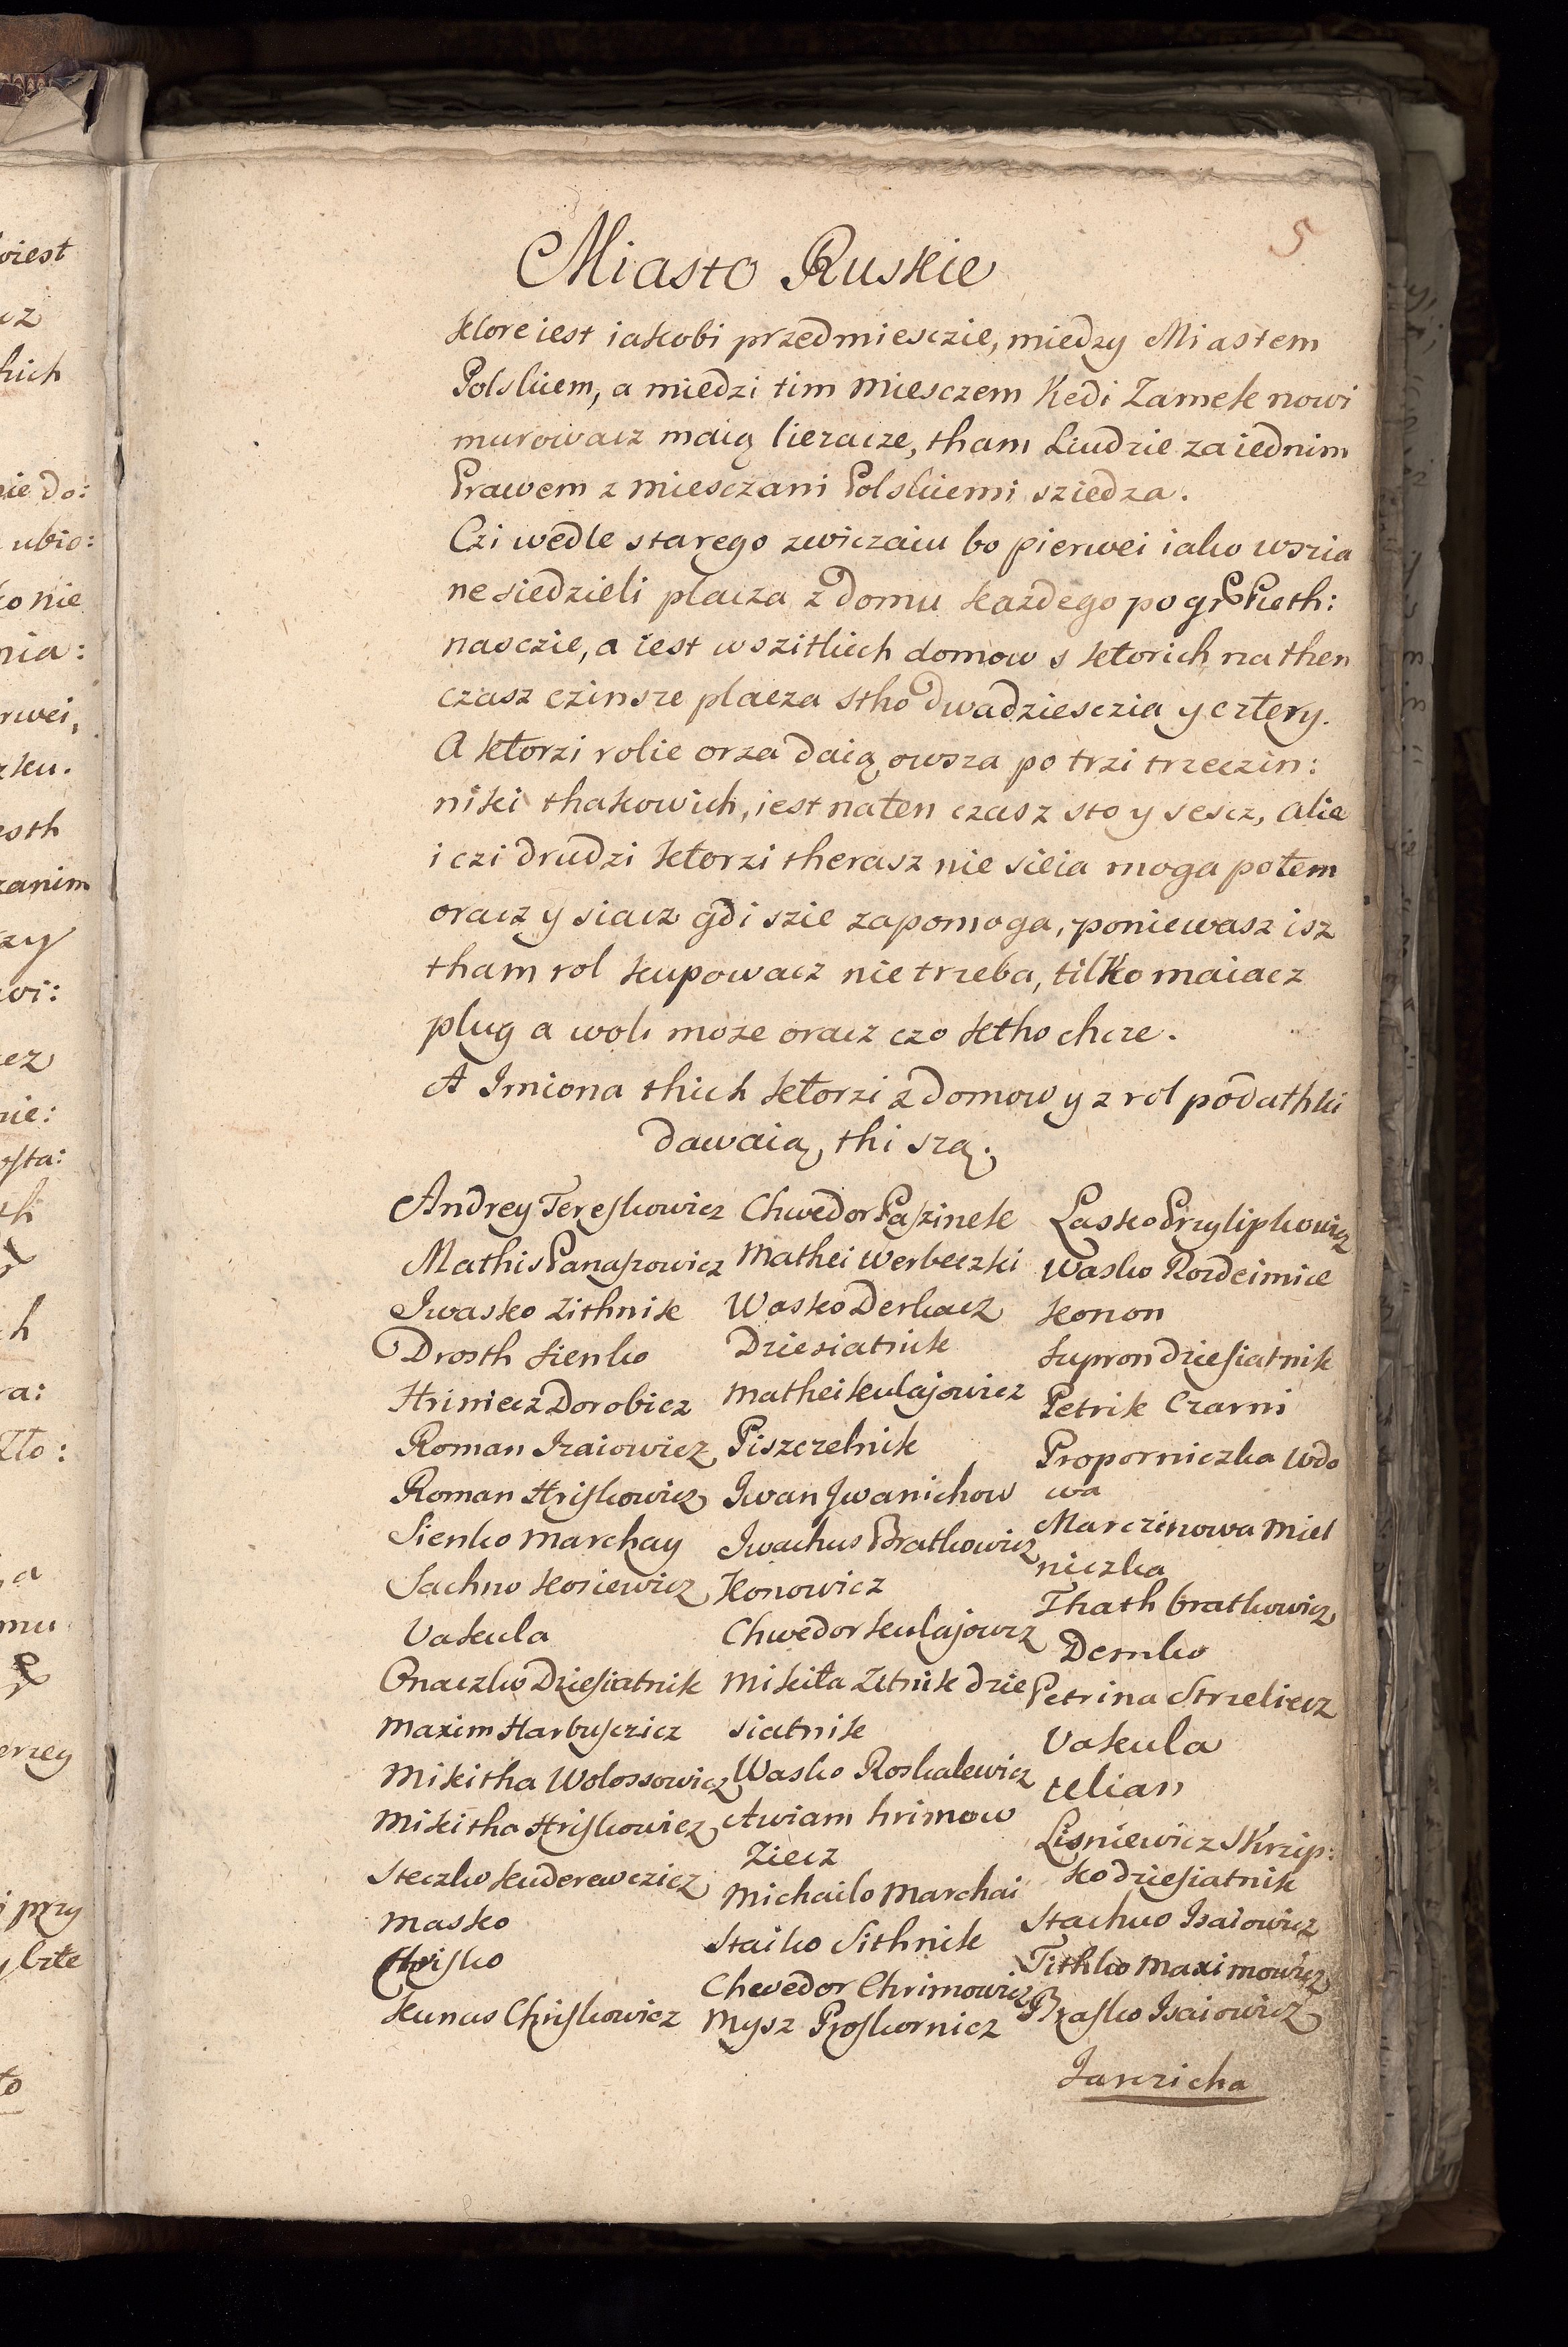 5
Miasto Ruskie
ktore iest iakobi przedmiesczie, miedzy Miastem
Polskiem, a miedzi tim miesczem Kedi Zamek nowi
murowacz maią
tham Liudzie za iednim
Prawem z miesczani Polskiemi sziedza.
Czi wedle starego zwiczaiu bo pierwei iako wszia
ne siedzieli placza z domu każdego po gr Pieth:
nasczie, a iest wszitkich domow s ktorich na then
czasz czinsze placza stho dwadziesczia y cztery.
A ktorzi rolie orza daią owsza po trzi trzeczin:
niki thakowich, iest naten czasz sto y sescz, Alie
i czi drudzi ktorzi therasz nie sieia moga potem
oracz y siacz gdi szie zapomoga, poniewasz isz
tham rol kupowacz nie trzeba, tilko maiacz
plug a woli moze oracz czo ktho chcze.
A Imiona thich ktorzi z domow y z rol podathki
dawaią, thi szą.
Andrey Tereskowicz
Mathis Panaszowicz
Iwasko Zithnik
Drosth Sienko
Hrimecz Dorobicz
Roman Izaiowicz
Roman Hriskowicz
Sienko Marchay
Sachno Kosiewicz
Vakula
Onaczko Dziesiatnik
Maxim Harbusczicz
Mikitha Wolossowicz
Mikitha Hriskowicz
Steczko Kuderewczicz
Masko
Hrisko
Kunas Chriskowicz
Chwedor Paszinek
Mathei Werbeczki
Wasko Derkacz
Dziesiatnik
Mathei Kulajowicz
Piszczelnik
Iwan Iwanichow
Iwachus Bratkowicz
Konowicz
Chwedor Kulajowicz
Mikita Zitnik dzie
siatnik
Wasko Roskalewicz
Awiam hrimow
Ziecz
Michailo Marchai
Staiko Sithnik
Chwedor Chrimowicz
Mysz Proskornicz
Lasko Przylipkowicz
Wasko
Konon
Supron dziesiatnik
Petrik Czarni
Proporniczka Wdo
wa
Marczinowa Miel
niczka
Thath bratkowicz
Demko
Petrina Strzeliecz
Vakula
Ulian
Lisniewicz Skrzip:
ko dziesiatnik
Stachno Isaiowicz
Tithko Maximowicz
Prasko Isaiowicz
Janczicha